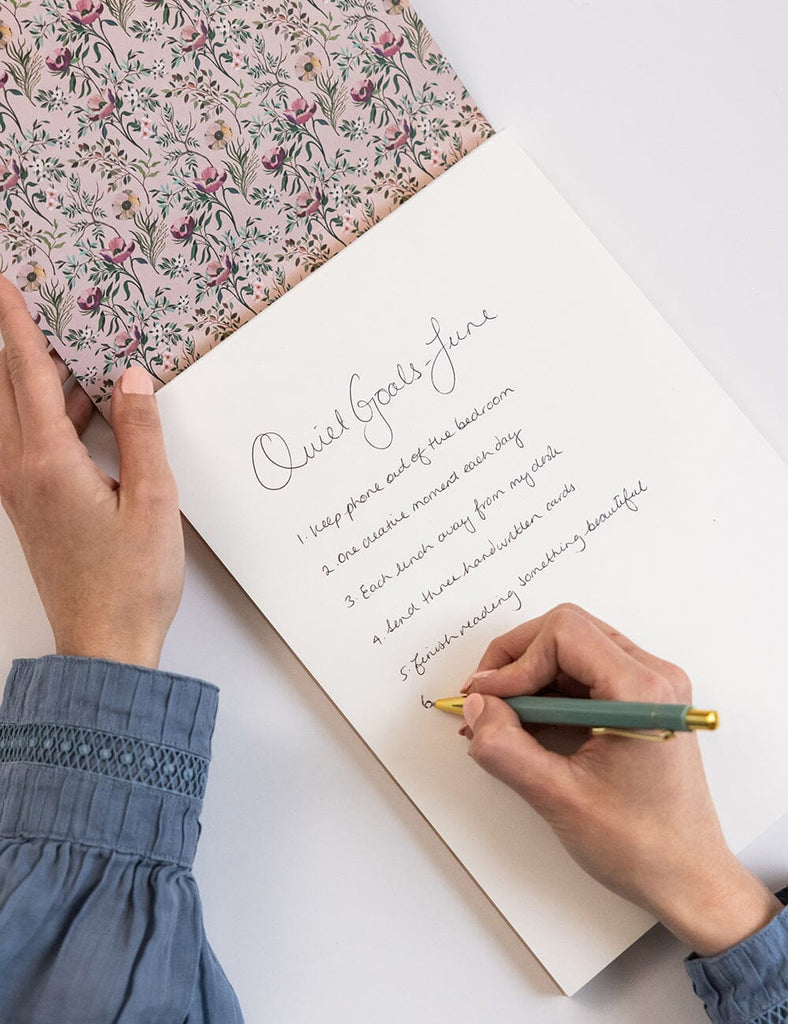 Quiet Goals - June
1. Keep phone out of the bedroom
2. One creative moment each day
3. Each lunch away from my desk
4. Send three handwritten cards
5. Finish reading something beautiful
6.